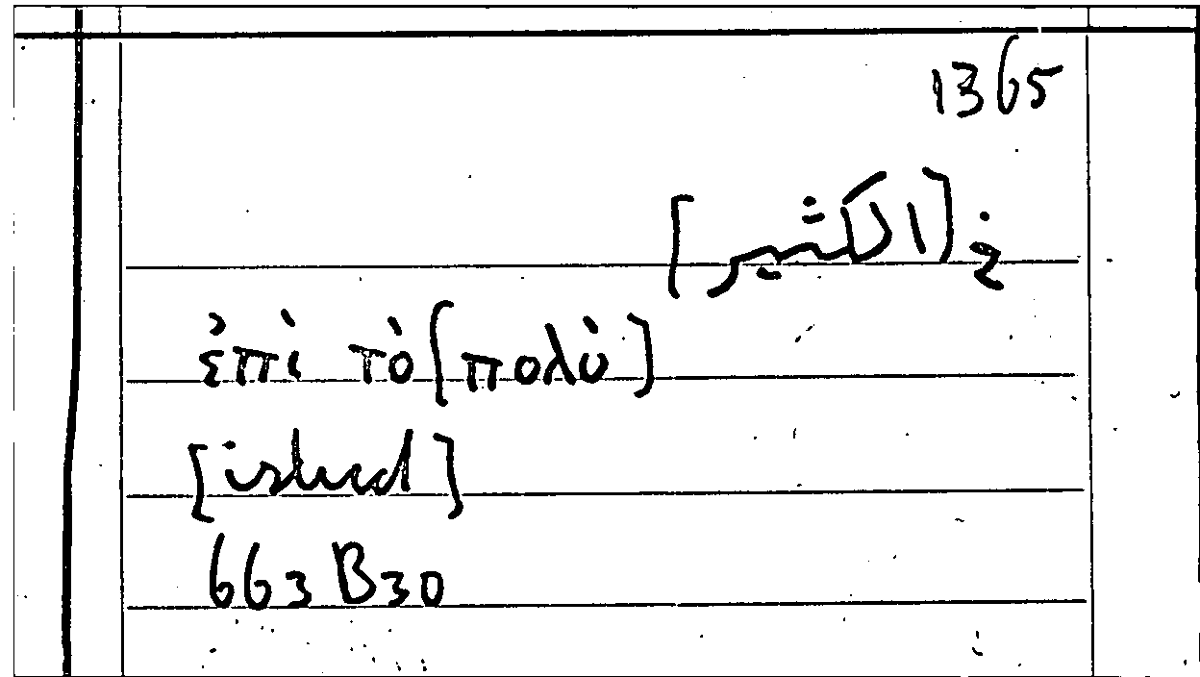 1365
في [الكثير]
ἐπὶ τὸ [πολὺ]
663 B 30